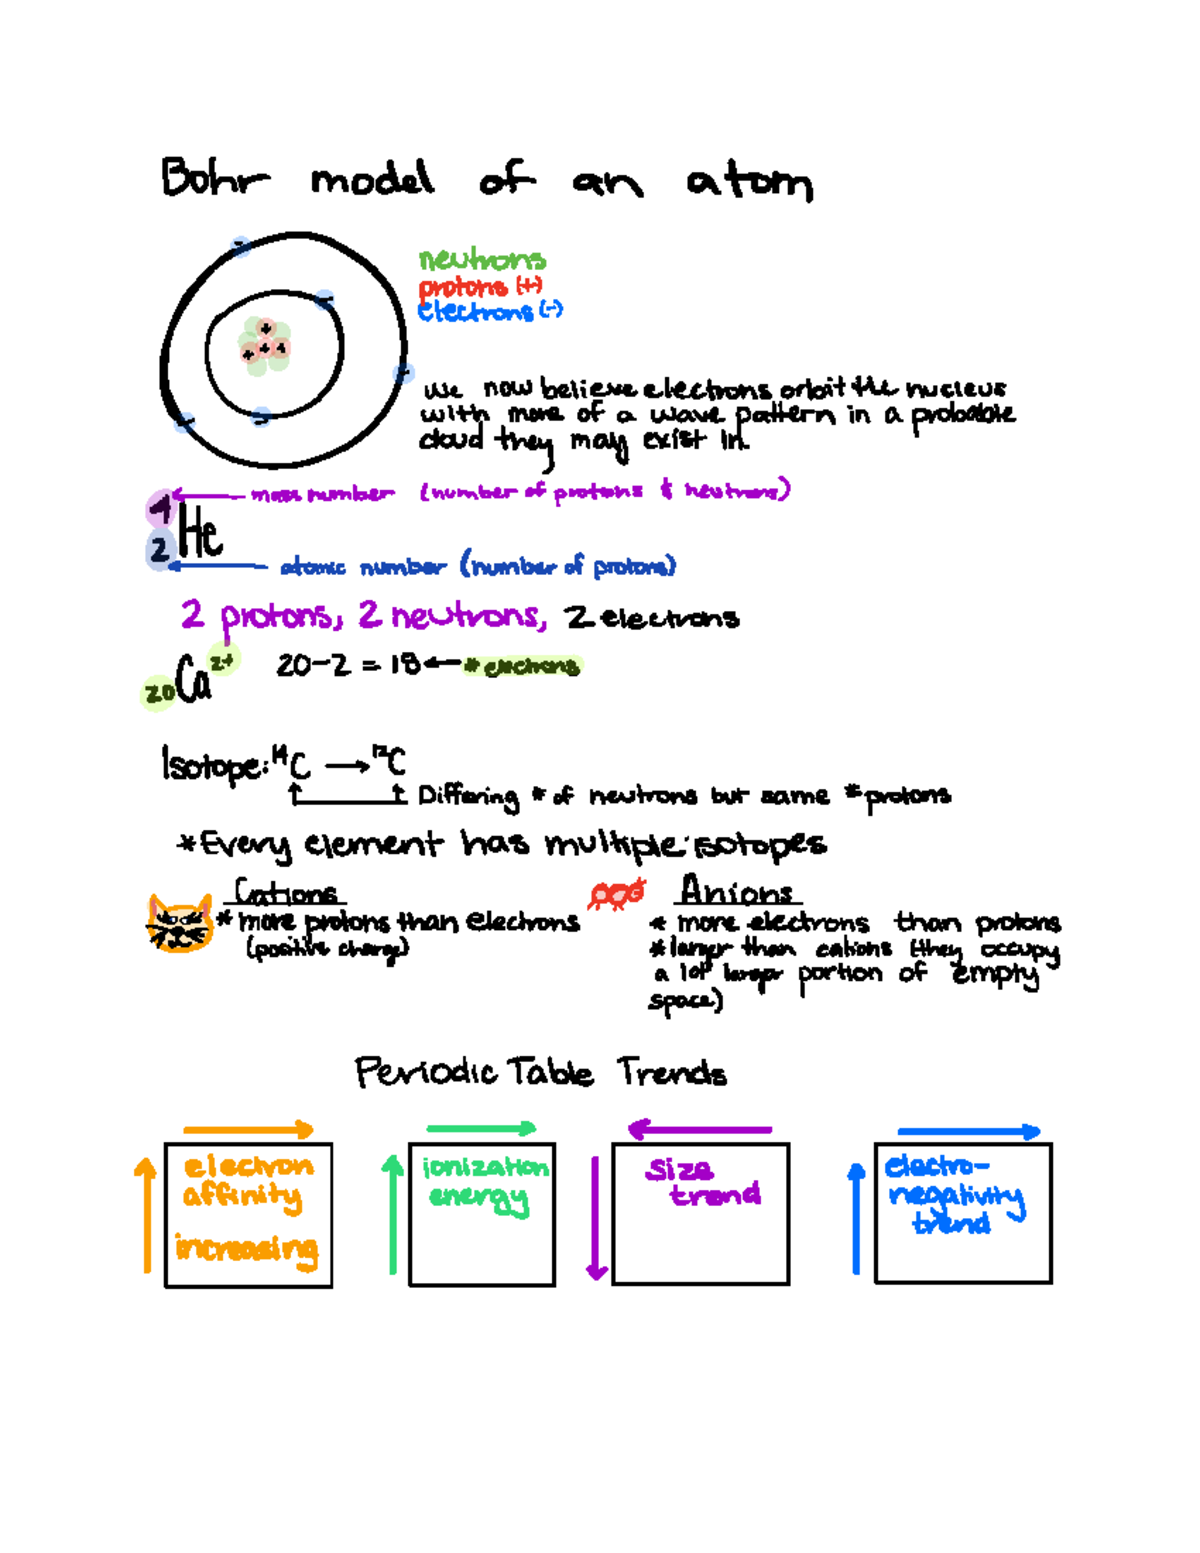 Bohr model of an atom
neutrons
protons (+)
electrons (-)
we now believe electrons orbit the nucleus
with more of a wave pattern in a probable
cloud they may exist in.
4 mass number (number of protons & neutrons)
He
2 atomic number (number of protons)
2 protons, 2 neutrons, 2 electrons
20Ca2+ 20-2 = 18 ← # electrons
Isotope: 14C → 12C
Differing # of neutrons but same # protons
*Every element has multiple isotopes
Cations
* more protons than electrons
(positive charge)
Anions
* more electrons than protons
* larger than cations (they occupy
a lot larger portion of empty
space)
Periodic Table Trends
electron
affinity
increasing
ionization
energy
size
trend
electro-
negativity
trend